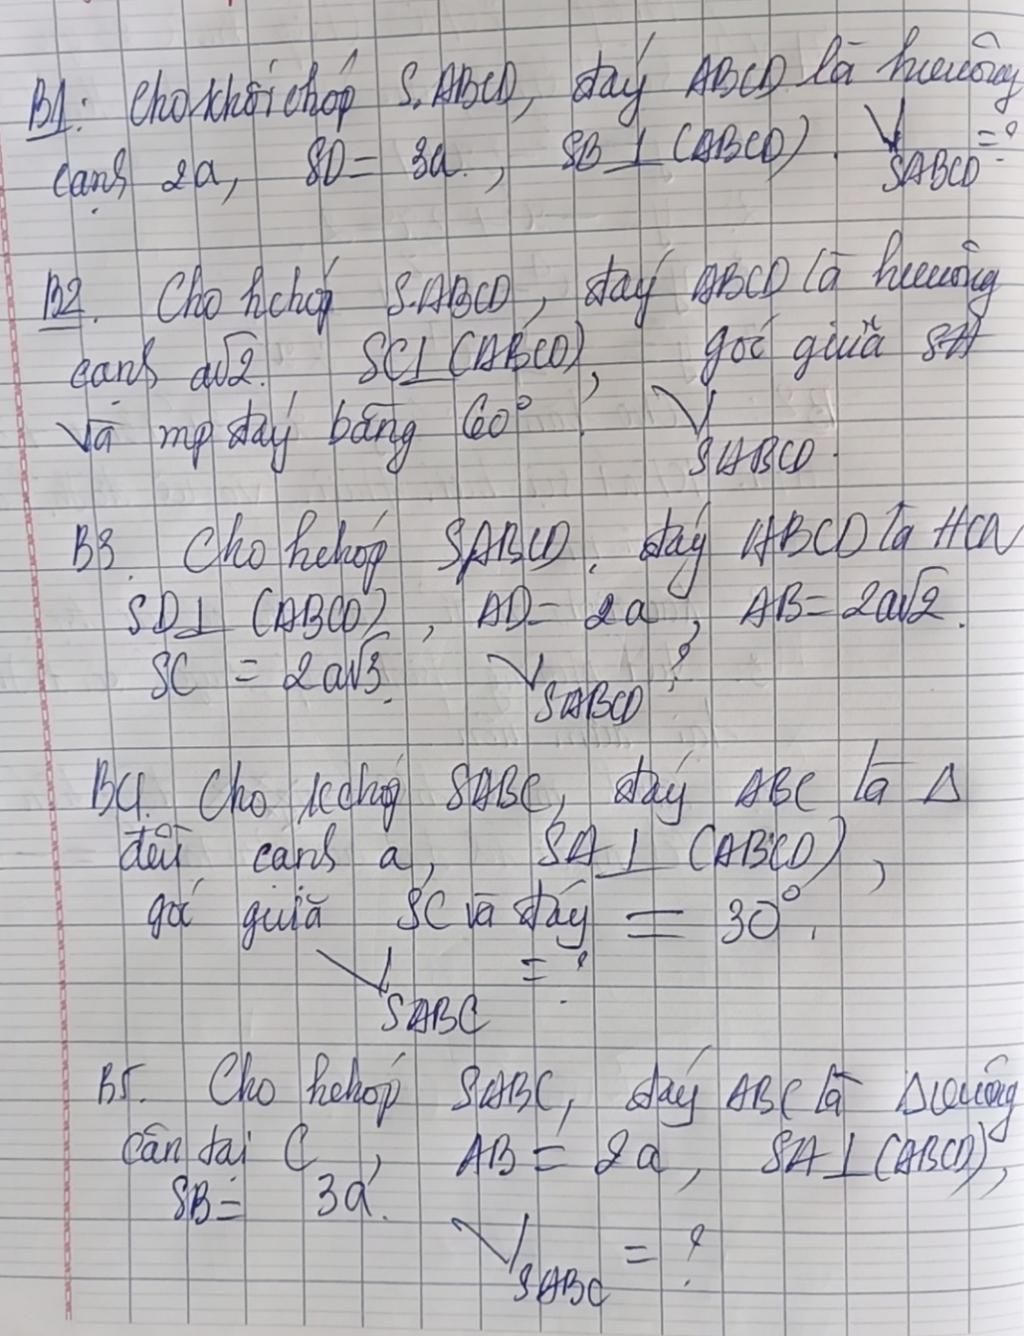 B1: Cho khối chóp S.ABCD, đáy ABCD là hvuông
cạnh 2a, SD = 3a, SB ⊥ (ABCD). V SABCD = ?
B2. Cho hchóp S.ABCD, đáy ABCD là hvuông
cạnh a√2. SC ⊥ (ABCD), góc giữa SA
và mp đáy bằng 60°. V SABCD.
B3. Cho hchóp SABCD, đáy ABCD là HCN
SD ⊥ (ABCD), AD = 2a, AB = 2a√2.
SC = 2a√3. V SABCD ?
B4. Cho kchóp SABC, đáy ABC là Δ
đều cạnh a, SA ⊥ (ABCD),
góc giữa SC và đáy = 30°.
V SABC = ?
B5. Cho hchóp SABC, đáy ABC là Δvuông
cân tại C, AB = 2a, SA ⊥ (ABCD),
SB = 3a.
V SABC = ?